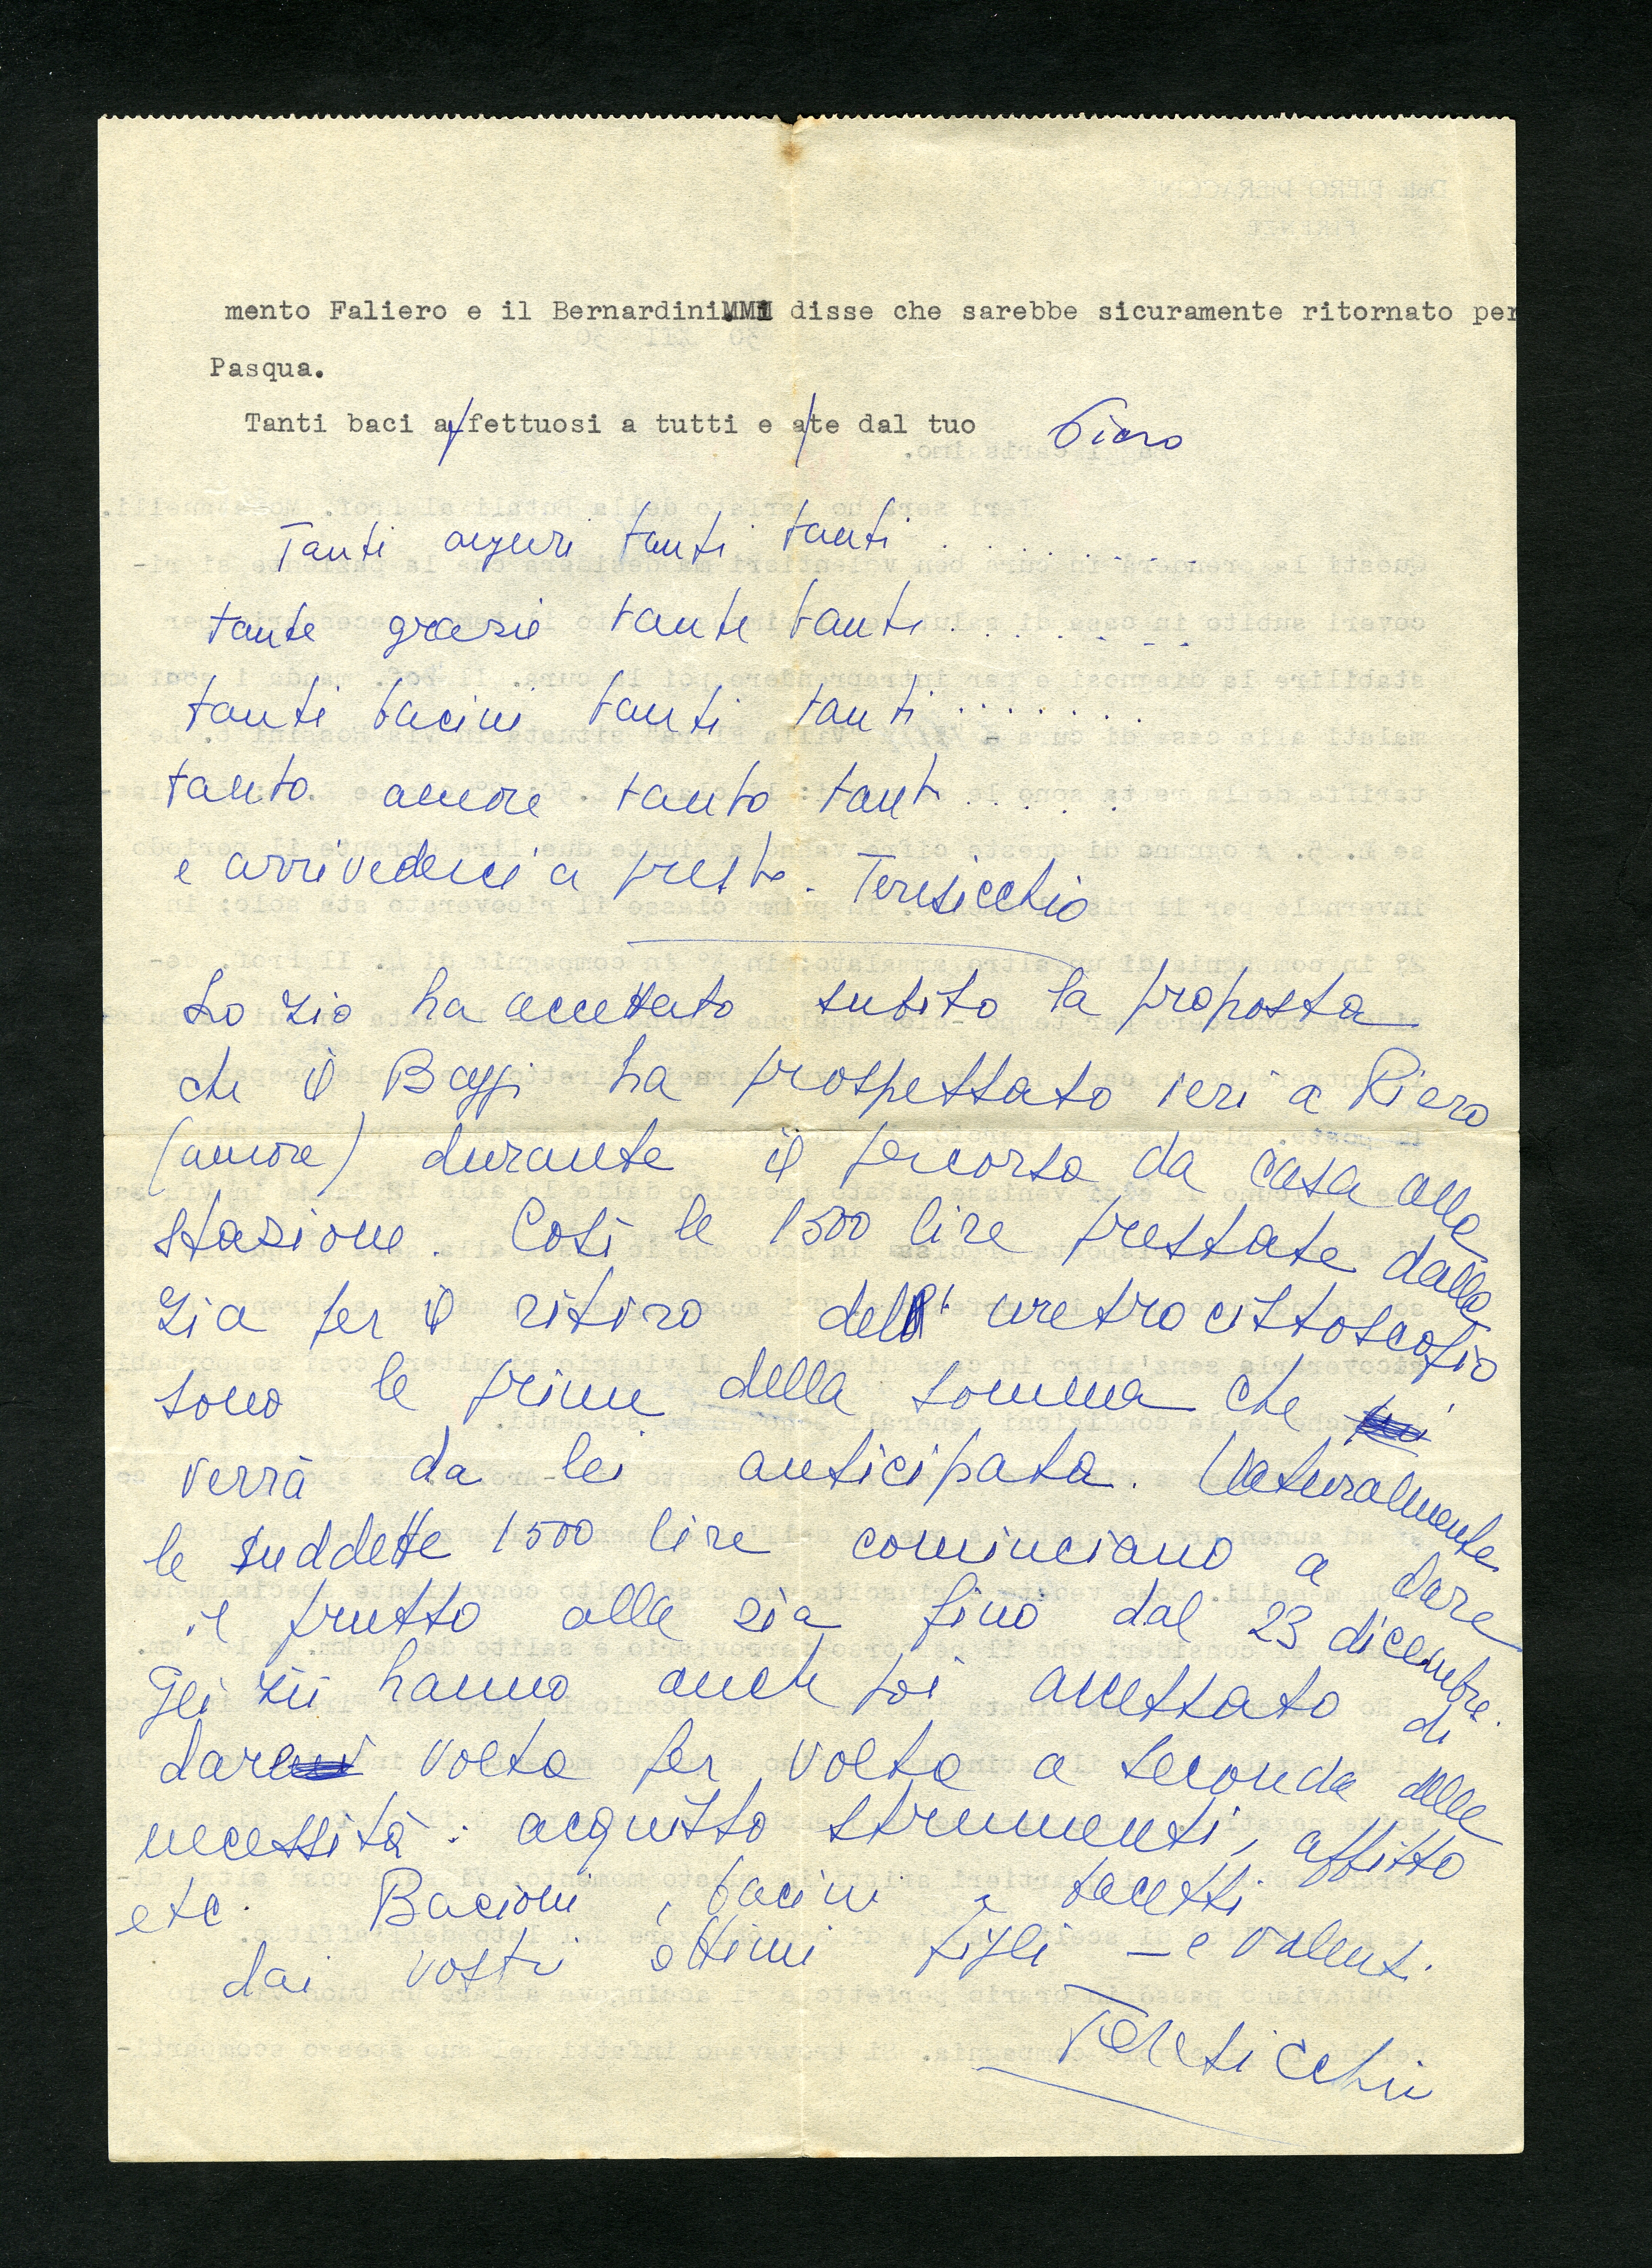 mento Faliero e il Bernardini disse che sarebbe sicuramente ritornato per
Pasqua.
Tanti baci affettuosi a tutti e a te dal tuo Piero
Tanti auguri tanti tanti . . . . . . . .
tante grazie tante tanti . . . . . . . .
tanti bacini tanti tanti . . . . . . .
tanto amore tanto tant . . . . .
e arrivederci a presto. Teresicchio
Lo zio ha accettato subito la proposta
che il ha prospettato ieri a Piero
(amore) durante il percorso da casa alla
stazione. Così le 1500 lire prestate dalla
zia per il ritiro dell'uretrocistoscopio
sono le prime della somma che
verrà da lei anticipata. Naturalmente
le suddette 1500 lire cominciano a dare
il frutto alla zia fino dal 23 dicembre.
Gli zii hanno anche poi accettato di
dare volta per volta a seconda delle
necessità: acquisto strumenti, affitto
etc. Bacioni, bacini e bacetti
dai vostri ottimi figli – e valenti.
Teresicchio